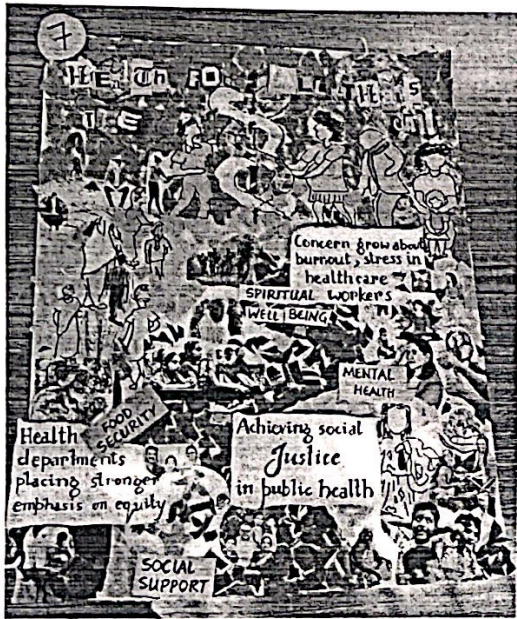 7
HE TH FO ALL THE
THE
Concern grow about
burnout, stress in
healthcare
workers
SPIRITUAL
WELL BEING
MENTAL
HEALTH
FOOD
SECURITY
Health
departments
placing stronger
emphasis on equity
Achieving social
Justice
in public health
SOCIAL
SUPPORT